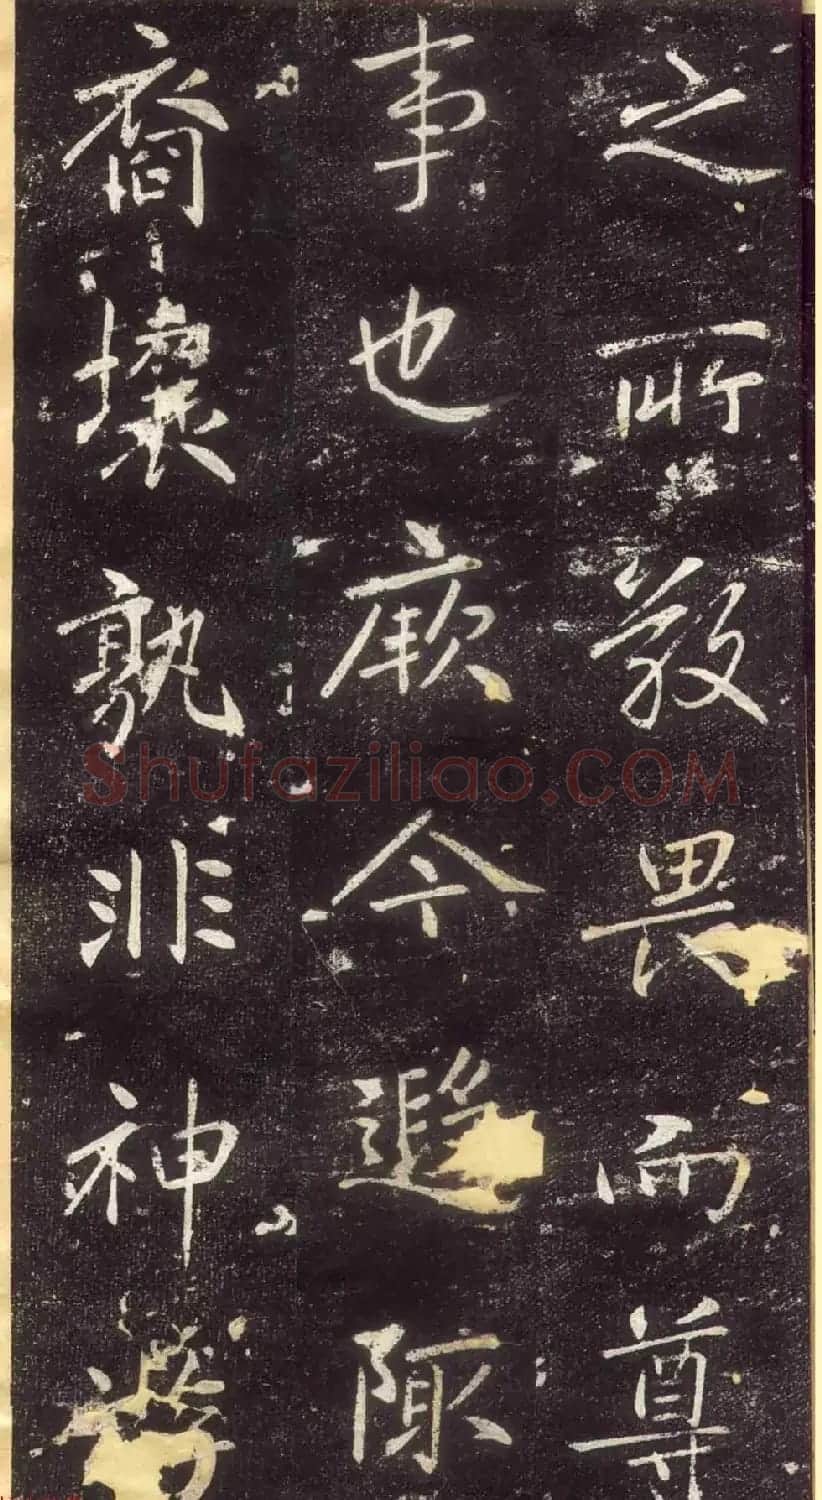 之所敬畏而尊
事也厥今遐陬
裔壤孰非神
Shufaziliao.COM